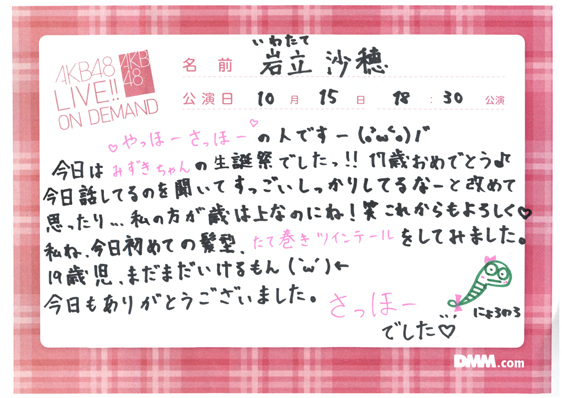 AKB48
LIVE!!
ON DEMAND
AKB
48
いわたて
名前 岩立 沙穂
公演日 10月15日 18:30 公演
♡やっほーさっほー♡の人ですー(｡･ω･｡)ﾉﾞ
今日はみずきちゃんの生誕祭でしたっ!! 17歳おめでとう♪
今日話してるのを聞いてすっごいしっかりしてるなーと改めて
思ったり...私の方が歳は上なのにね!笑 これからもよろしく♡
私ね、今日初めての髪型、たて巻きツインテールをしてみました。
19歳児、まだまだいけるもん(`ω´)←
今日もありがとうございました。
さっほー
でした♡
にょろのろ
DMM.com